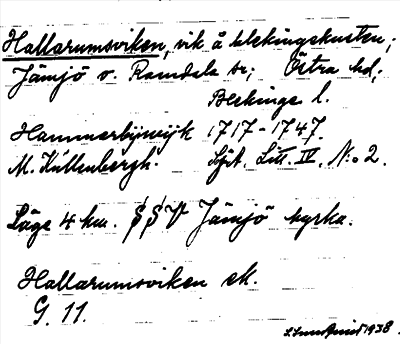 Hallarumsviken, vik å blekingekusten;
Jämjö o. Ramdala sn; Östra hd;
Blekinge l.
Hammarbywijk 1717-1747.
M. Küllenbergh. Sjöt. Litt. IV. No 2.
Läge 4 km. SSV Jämjö kyrka.
Hallarumsviken ek.
G. 11.
1938.